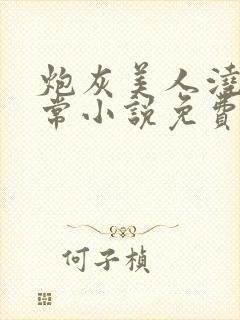 炮灰美人澆
常小說免費
何子楨